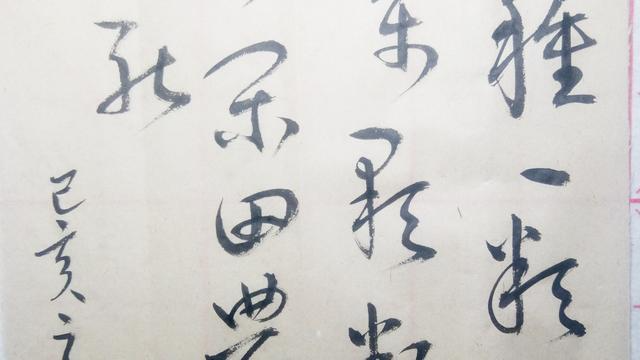 種一粒
萬顆
閑田農
死
己亥